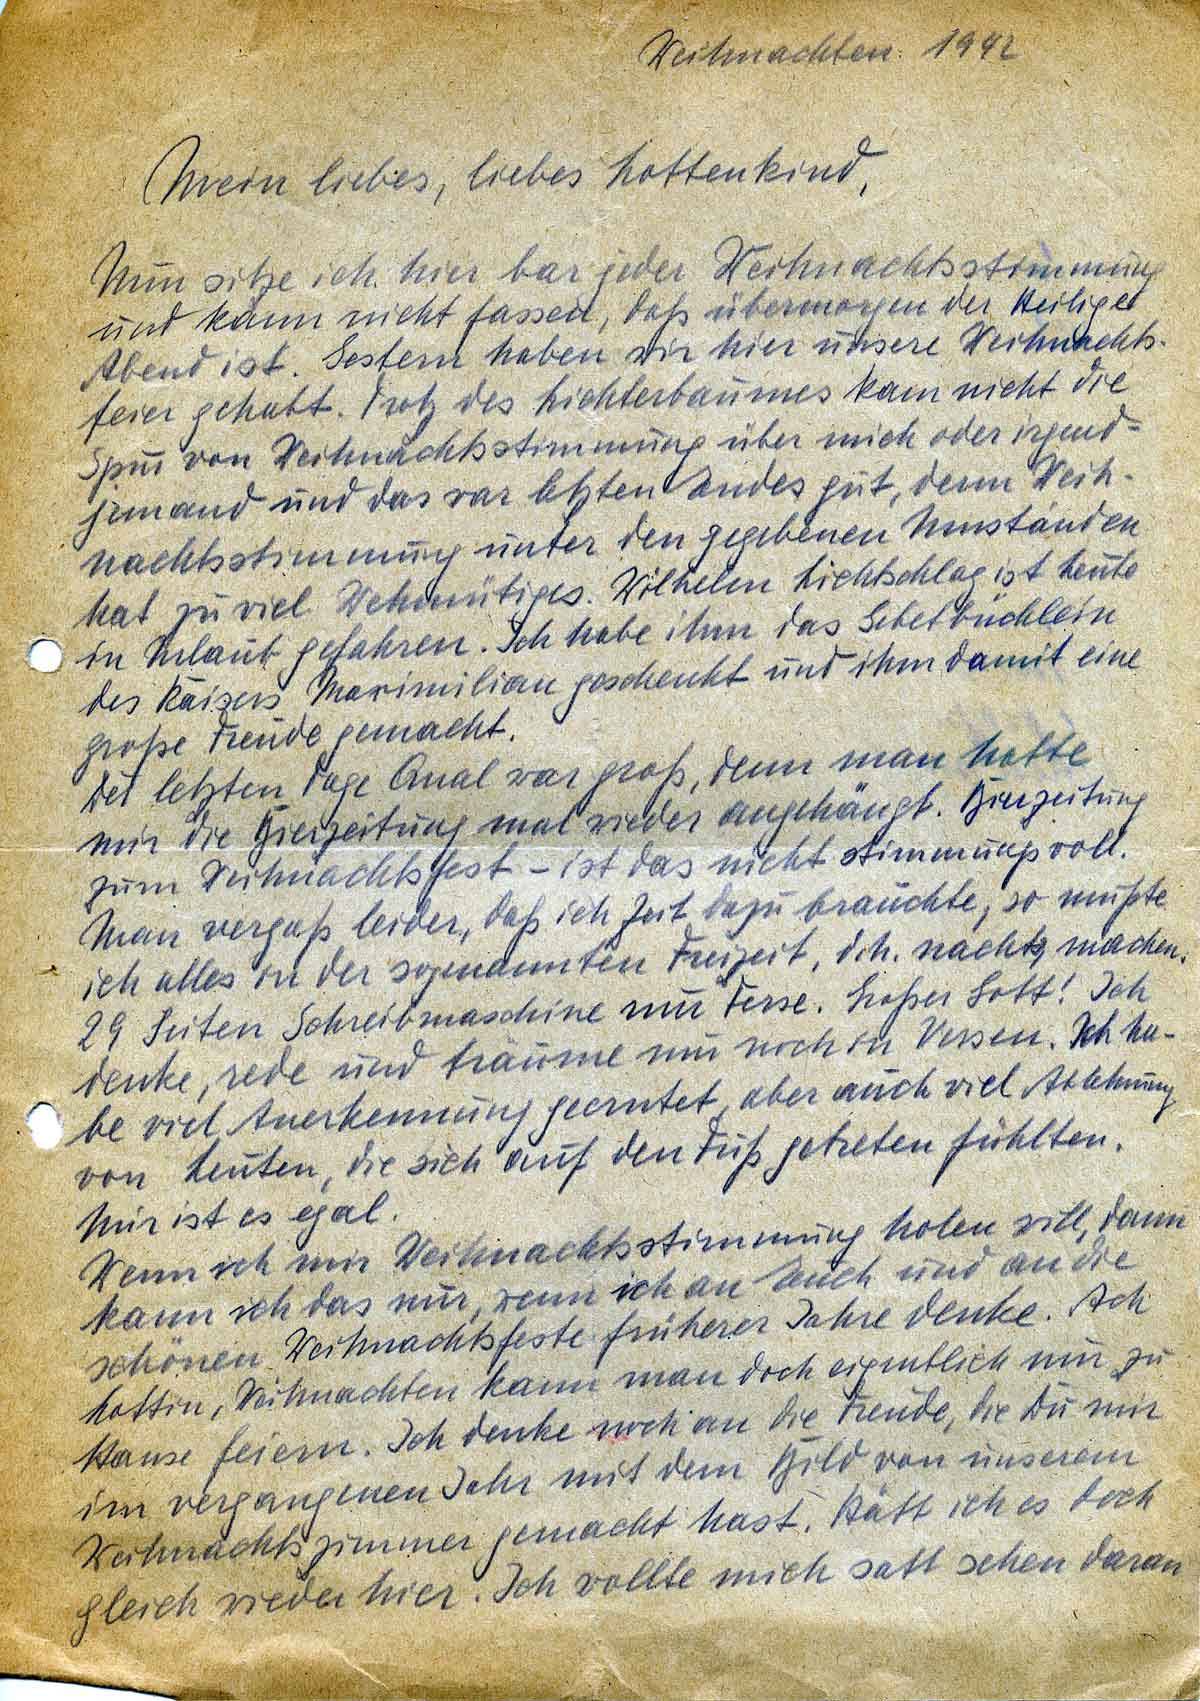 Weihnachten 1942
Mein liebes, liebes Lottenkind,
Nun sitze ich hier bar jeder Weihnachtsstimmung
und kann nicht fassen, daß übermorgen der Heilige
Abend ist. Gestern haben wir hier unsere Weihnachts-
feier gehabt. Trotz des Lichterbaumes kam nicht die
Spur von Weihnachtsstimmung über mich oder irgend-
jemand und das war letzten Endes gut, denn Weih-
nachtsstimmung unter den gegebenen Umständen
hat zu viel Wehmütiges. Wilhelm Lichtschlag ist heute
in Urlaub gefahren. Ich habe ihm das Gebetbüchlein
des Kaisers Maximilian geschenkt und ihm damit eine
große Freude gemacht.
Der letzten Tage Qual war groß, denn man hatte
mir die Bierzeitung mal wieder angehängt. Bierzeitung
zum Weihnachtsfest – ist das nicht stimmungsvoll.
Man vergaß leider, daß ich Zeit dazu brauchte, so mußte
ich alles in der sogenannten Freizeit, d.h. nachts, machen.
29 Seiten Schreibmaschine nur Verse. Großer Gott! Ich
denke, rede und träume nur noch in Versen. Ich ha-
be viel Anerkennung geerntet, aber auch viel Ablehnung
von Leuten, die sich auf den Fuß getreten fühlten.
Mir ist es egal.
Wenn ich mir Weihnachtsstimmung holen will, dann
kann ich das nur, wenn ich an Euch und an die
schönen Weihnachtsfeste früherer Jahre denke. Ach
Lottin, Weihnachten kann man doch eigentlich nur zu
Hause feiern. Ich denke noch an die Freude, die Du mir
im vergangenen Jahr mit dem Bild von unserem
Weihnachtszimmer gemacht hast. Hätt ich es doch
gleich wieder hier. Ich wollte mich satt sehen daran